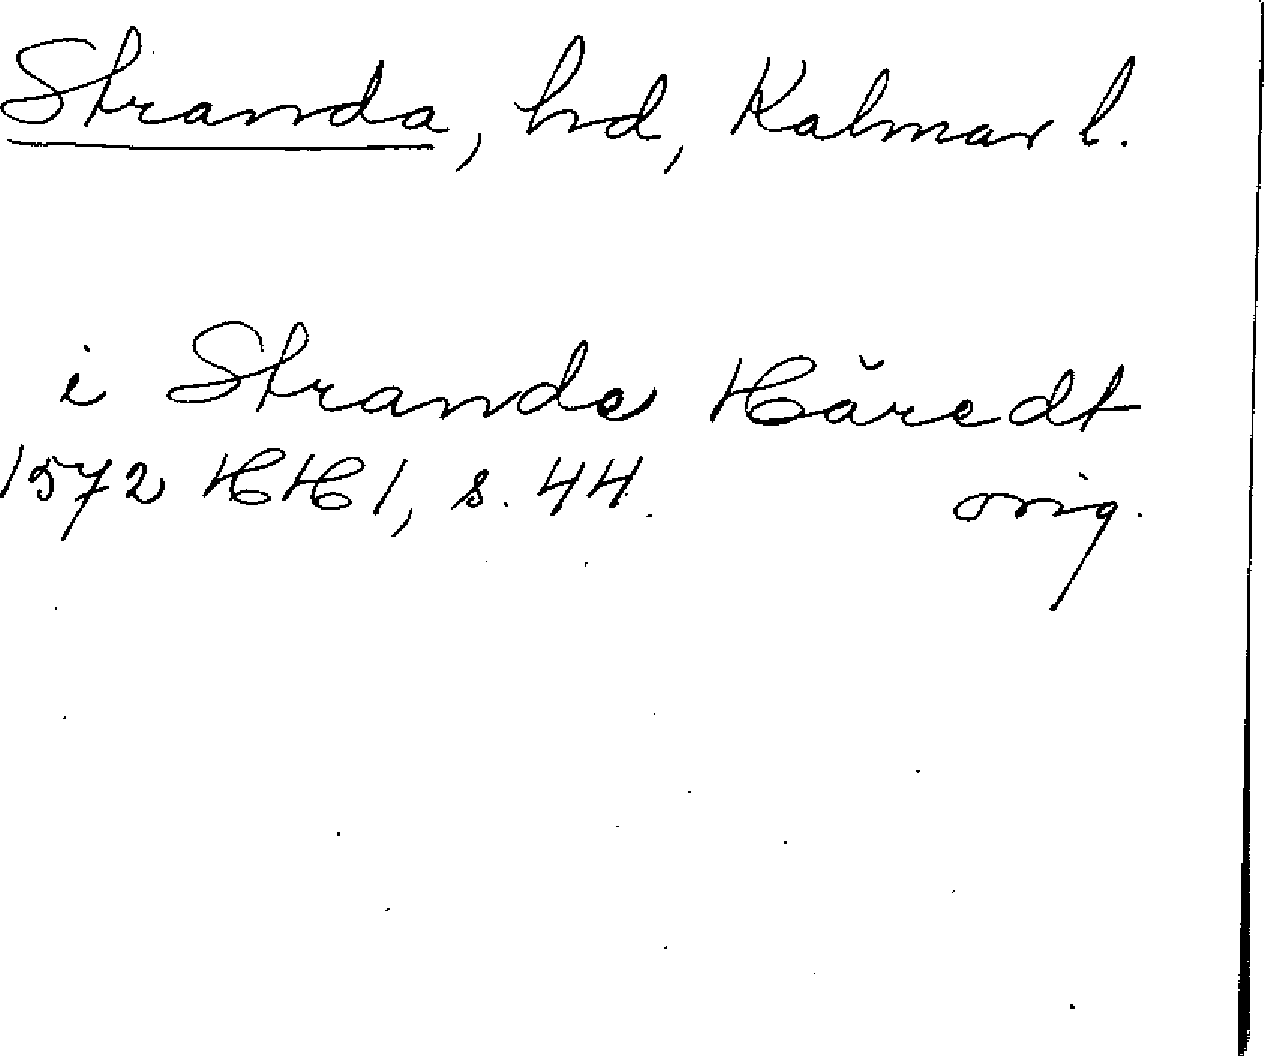 Stranda, hd, Kalmar l.
i Strande Häredt
1572 HH 1, s. 44. orig.